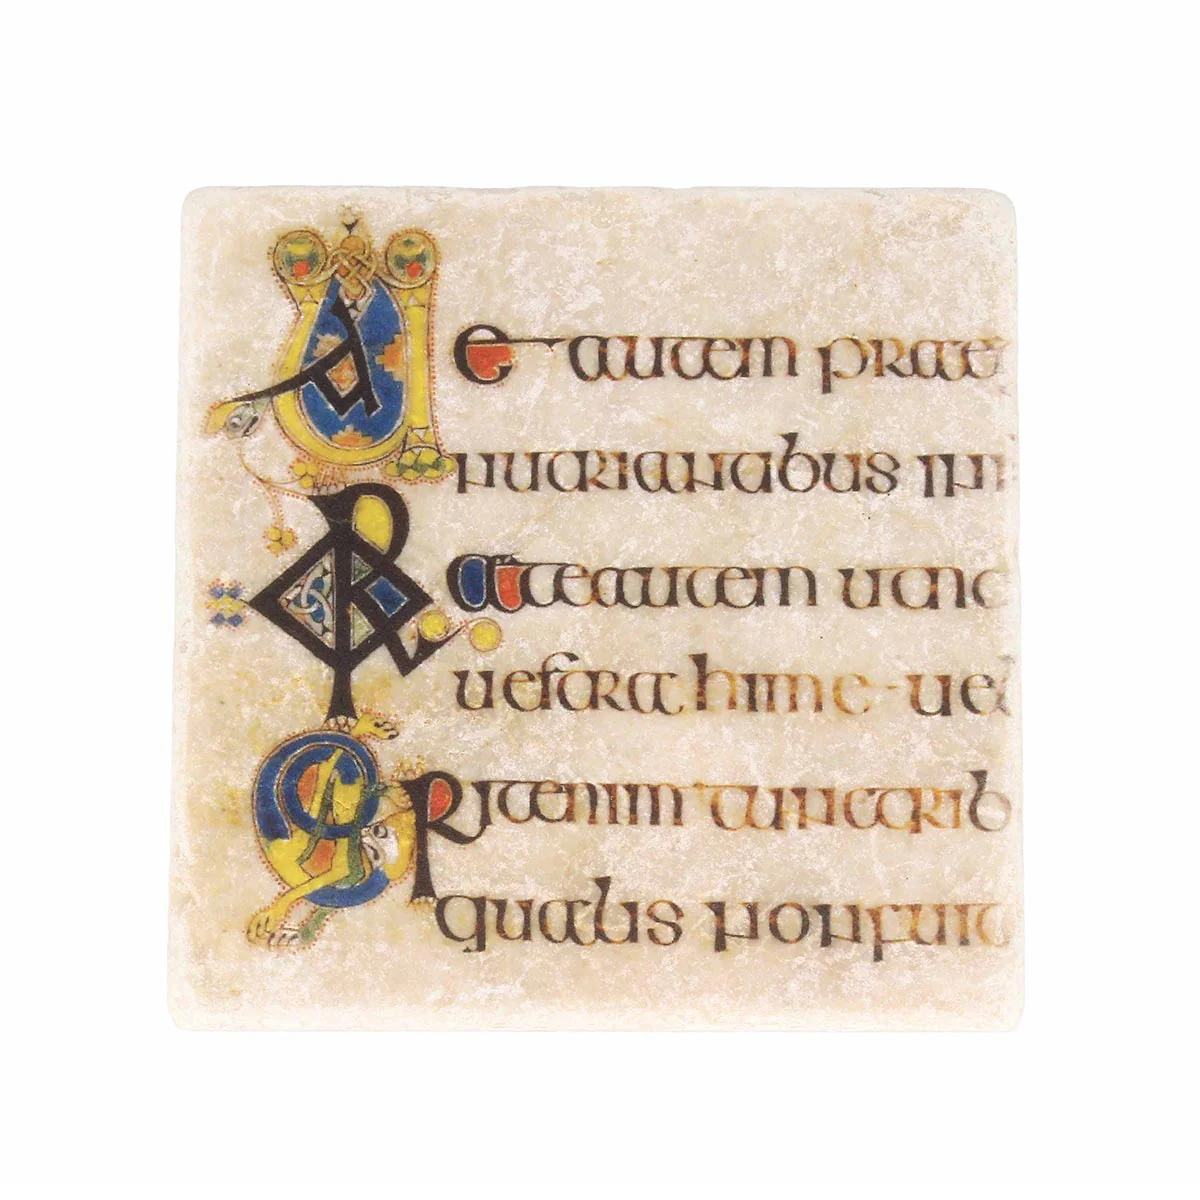 Uae autem prae
nutriantibus in
Orate autem ut no
uestra hime-uel
Erit enim tunc trib
qualis non fuit